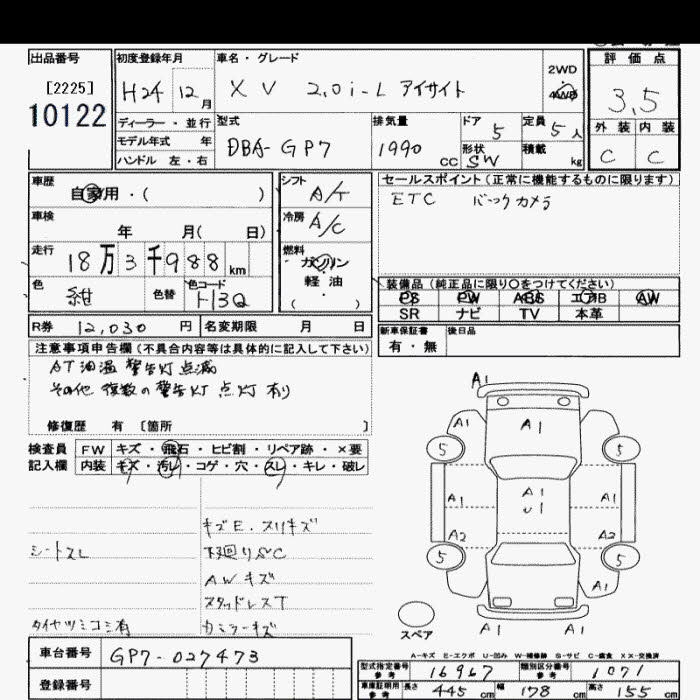 出品番号
[2225]
10122
初度登録年月
H24 12月
ディーラー・並行
モデル年式 年
ハンドル 左・右
車名・グレード
XV 2.0i-L アイサイト
2WD
4WD
評価点
3.5
外装 内装
C C
型式
DBA-GP7
排気量
1990 cc
ドア
5
形状
SW
定員
5人
積載
kg
車歴
自家用・( )
車検
年 月( 日)
走行
18万3千988km
色
紺
色替
色コード
H3Q
シフト
A/T
冷房
A/C
燃料
ガソリン
軽油
( ・ )
セールスポイント(正常に機能するものに限ります)
ETC バックカメラ
装備品(純正品に限り○をつけてください)
PS PW ABS エアB AW
SR ナビ TV 本革
R券 12,030 円 名変期限 月 日
新車保証書 後日品
有・無
注意事項申告欄(不具合内容等は具体的に記入して下さい)
AT油温警告灯点滅
その他 複数の警告灯点灯有り
修復歴 有 [箇所 ]
検査員 FW キズ・飛石・ヒビ割・リペア跡・×要
記入欄 内装 キズ・汚レ・コゲ・穴・スレ・キレ・破レ
キズE.スリキズ
シートスレ
下廻りSC
AWキズ
スタッドレスT
タイヤツミコミ有
カミラーキズ
車台番号 GP7-027473
登録番号
A1
A1
5 5
A1
A1 U1 A1
A2 A2
5 5
A1 A1
A1 A1
スペア
A-キズ E-エクボ U-凹み W-補修跡 S-サビ C-腐食 XX-交換済
型式指定番号 参考 16967 類別区分番号 参考 1071
車庫証明用 参考 長さ 445 cm 幅 178 cm 高さ 155 cm